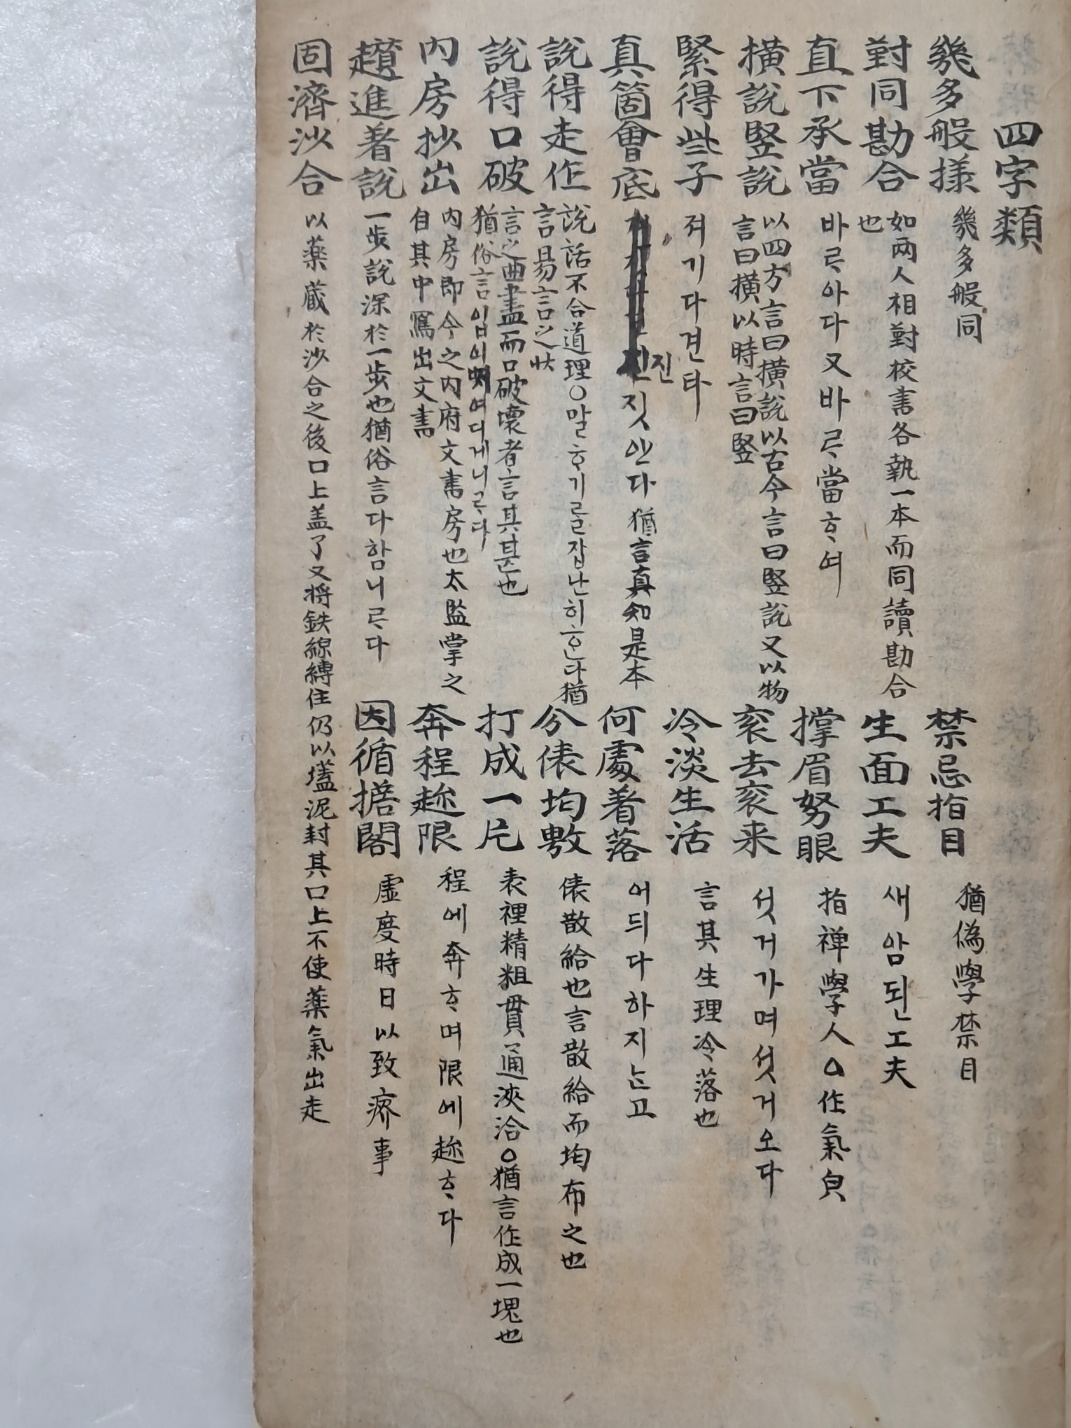 四字類
幾多般樣 幾多般同
禁忌指目 猶偽學禁目
對同勘合 如兩人相對校書各執一本而同讀勘合也
生面工夫 새암된工夫
直下承當 바ᄅᆞ아다又바ᄅᆞ當ᄒᆞ여
撑眉努眼 指禅學人○作氣皃
橫說竪說 以四方言曰橫說以古今言曰竪說又以物言曰橫以時言曰竪
衮去衮来 섯거가며섯거오다
緊得些子 져기다견타
冷淡生活 言其生理冷落也
真箇會底 진짓안다猶言真知是本
何處着落 어듸다하지ᄂᆞᆫ고
說得走作 說話不合道理○말ᄒᆞ기ᄅᆞᆯ잡난히ᄒᆞᆫ다猶言易言之狀
分俵均敷 俵散給也言散給而均布之也
說得口破 言之曲盡而口破壞者言其甚也猶俗言입이여디게니ᄅᆞ다
打成一片 表裡精粗貫通浹洽○猶言作成一塊也
內房抄出 內房即今之內府文書房也太監掌之自其中寫出文書
奔程趂限 程에奔ᄒᆞ며限에趂ᄒᆞ다
趲進着說 一步說深於一步也猶俗言다함니ᄅᆞ다
因循擔閣 虛度時日以致瘀事
固濟沙合 以藥蔵於沙合之後口上盖了又将鉄線縛住仍以塩泥封其口上不使藥氣出走